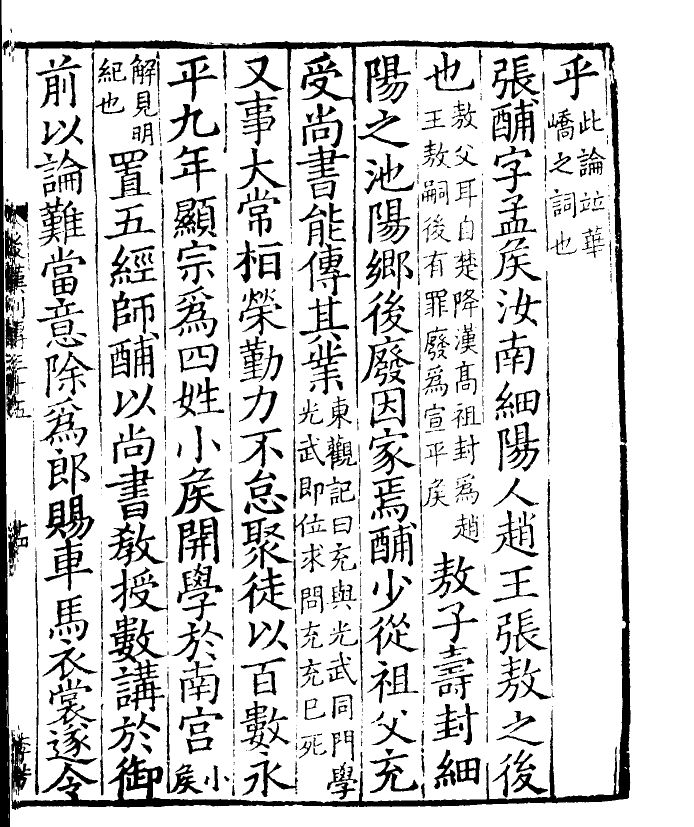 乎此論竝華嶠之詞也
張酺字孟矦汝南細陽人趙王張敖之後
也敖父耳自楚降漢高祖封爲趙王敖嗣後有罪廢爲宣平矦敖子壽封細
陽之池陽鄉後廢因家焉酺少從祖父充
受尚書能傳其業東觀記曰充與光武同門學光武即位求問充充已死
又事大常桓榮勤力不怠聚徒以百數永
平九年顯宗爲四姓小矦開學於南宮小矦
解見明紀也置五經師酺以尚書敎授數講於御
前以論難當意除爲郎賜車馬衣裳遂令